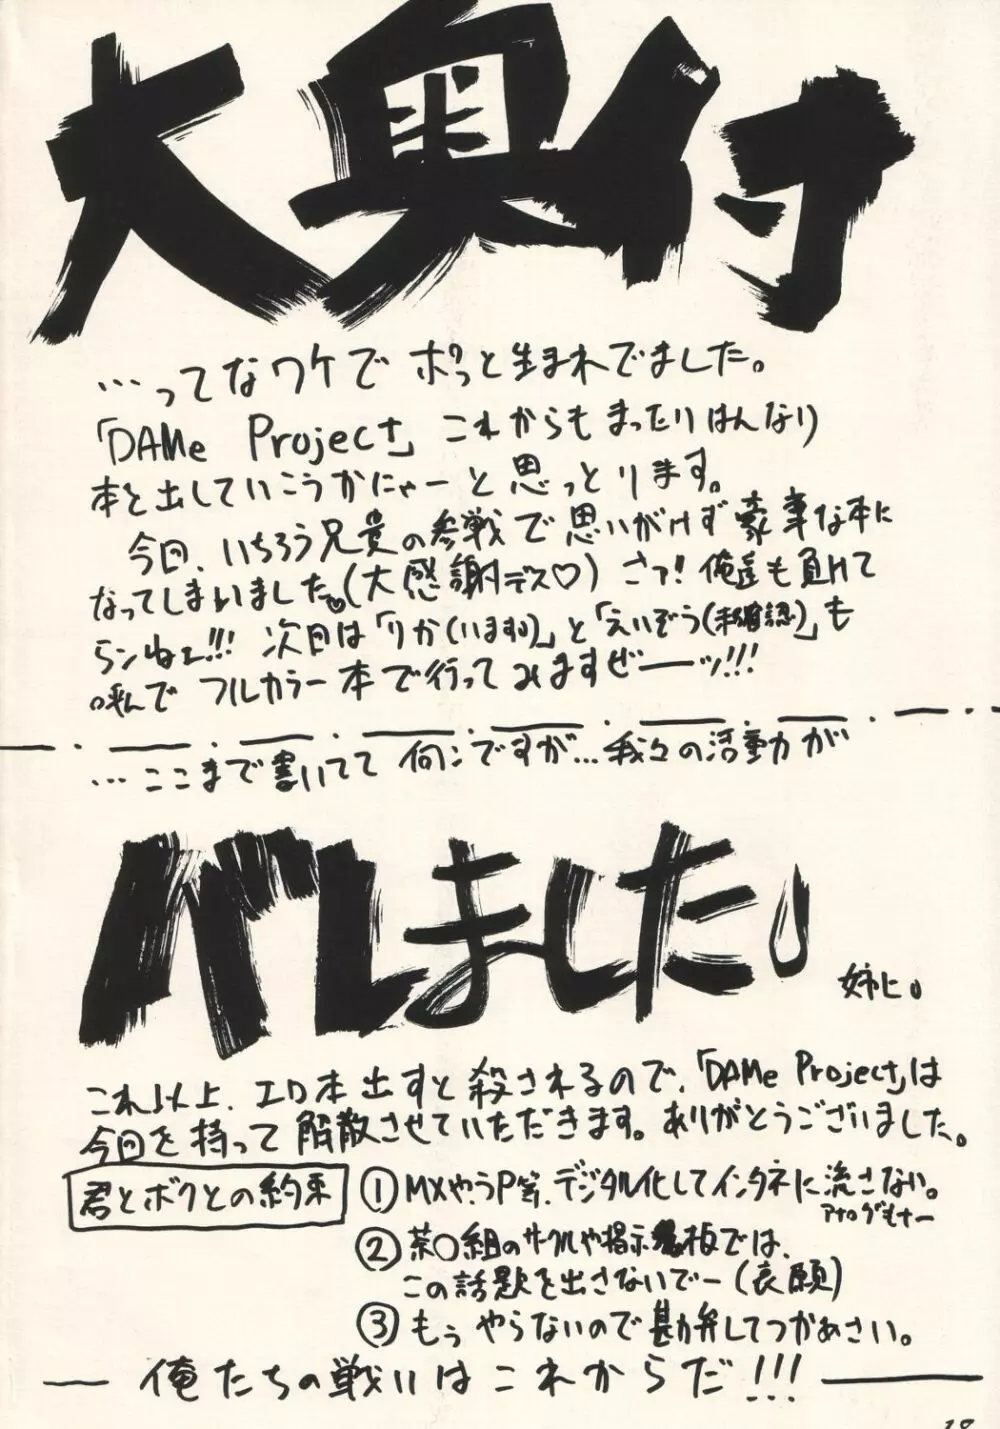 大奥付
…ってなワケで ポッと生まれでました。
「DAMe Project」これからもまったりはんなり
本を出していこうかにゃーと思っとります。
今回、いちろう兄貴の参戦で思いがけず豪華な本に
なってしまいました♡(大感謝デス♡) さァ!俺達も負けて
らンねェ!!! 次回は「りか(います)」と「えいぞう(未確認)」も
呼んで フルカラー本で行ってみますぜーーッ!!!
…ここまで書いてて 何ンですが…我々の活動が
バレました。
姉に。
これ以上、エロ本出すと殺されるので、「DAMe Project」は
今回を持って解散させていただきます。ありがとうございました。
君とボクとの約束
①MXやうP等、デジタル化してインタネに流さない。
アナログもナー
②茶○組のサークルや掲示板では、
この話題を出さないでー(哀願)
③もう やらないので勘弁してつかぁさい。
俺たちの戦いはこれからだ!!!
18